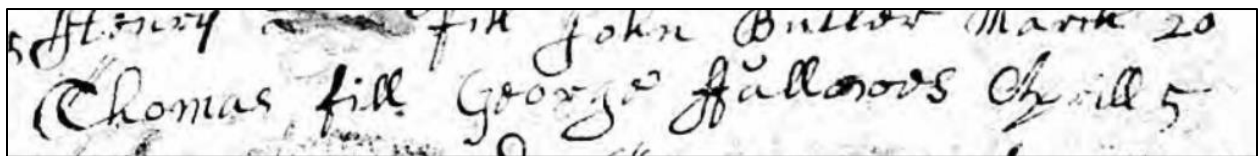 Henry fill John Butler March 20
Thomas fill George ffallowes Aprill 5